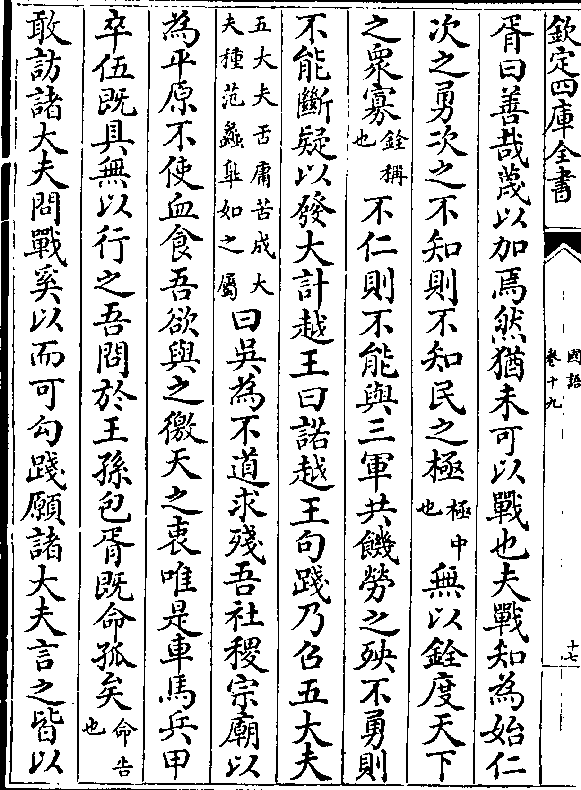 欽定四庫全書
國語
卷十九
十七
胥曰善哉蔑以加焉然猶未可以戰也夫戰知為始仁
次之勇次之不知則不知民之極極中也無以銓度天下
之衆寡銓稱也不仁則不能與三軍共饑勞之殃不勇則
不能斷疑以發大計越王曰諾越王句踐乃召五大夫
五大夫舌庸苦成大夫種范蠡臯如之屬曰吳為不道求殘吾社稷宗廟以
為平原不使血食吾欲與之徼天之衷唯是車馬兵甲
卒伍既具無以行之吾問於王孫包胥既命孤矣命告也
敢訪諸大夫問戰奚以而可勾踐願諸大夫言之皆以